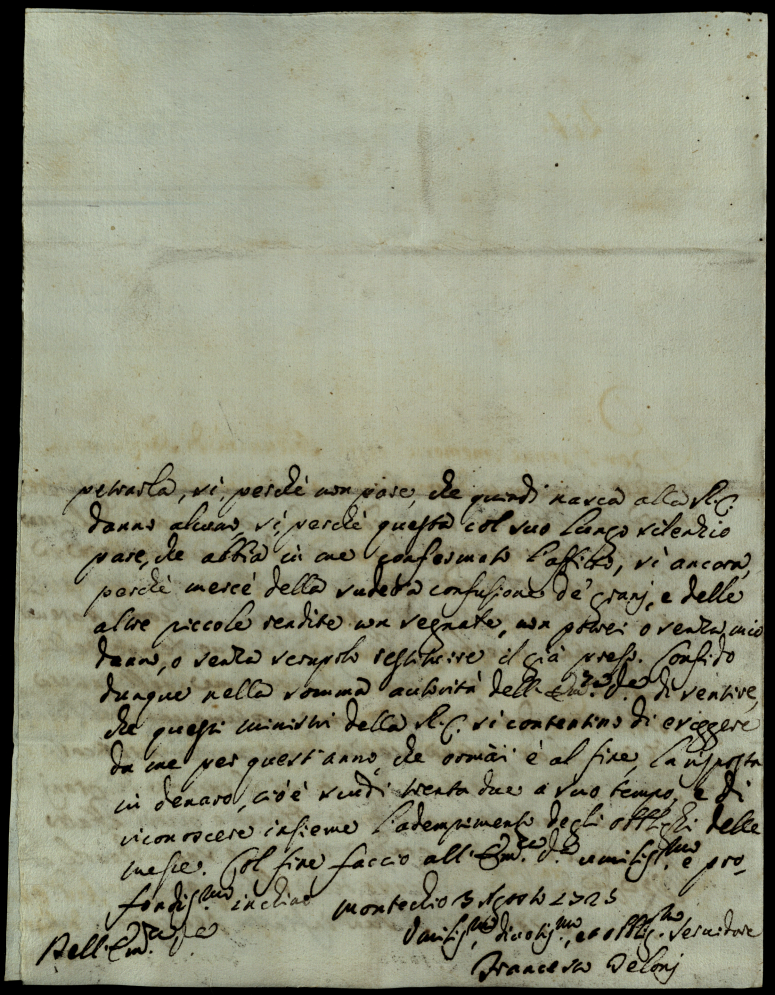 petrarla, sì, perchè non pare, che quindi nasca alla R. C.
danno alcuno, sì, perchè questa col suo lungo silenzio
pare, che abbia in me confermato l'affitto, sì ancora,
perchè mercè della sudetta confusione de' grani, e delle
altre piccole rendite non segnate, non potrei o senza mio
danno, o senza scrupolo restituire il già preso. Confido
dunque nella somma autorità dell' Em.za V.a di sentire,
che questi ministri della R. C. si contentino di esiggere
da me per quest'anno, che ormai è al fine, la risposta
in denaro, cioè scudi trenta due a suo tempo, e di
riconoscere insieme l'adempimento degli obblighi delle
messe. Col fine faccio all' Em.za V.a umiliss.mo e pro-
fondiss.mo inchino Montecchio 3 Agosto 1725
Dell' Em.za V.a
Umiliss.mo, divotiss.mo, et obblig.mo Servidore
Francesco